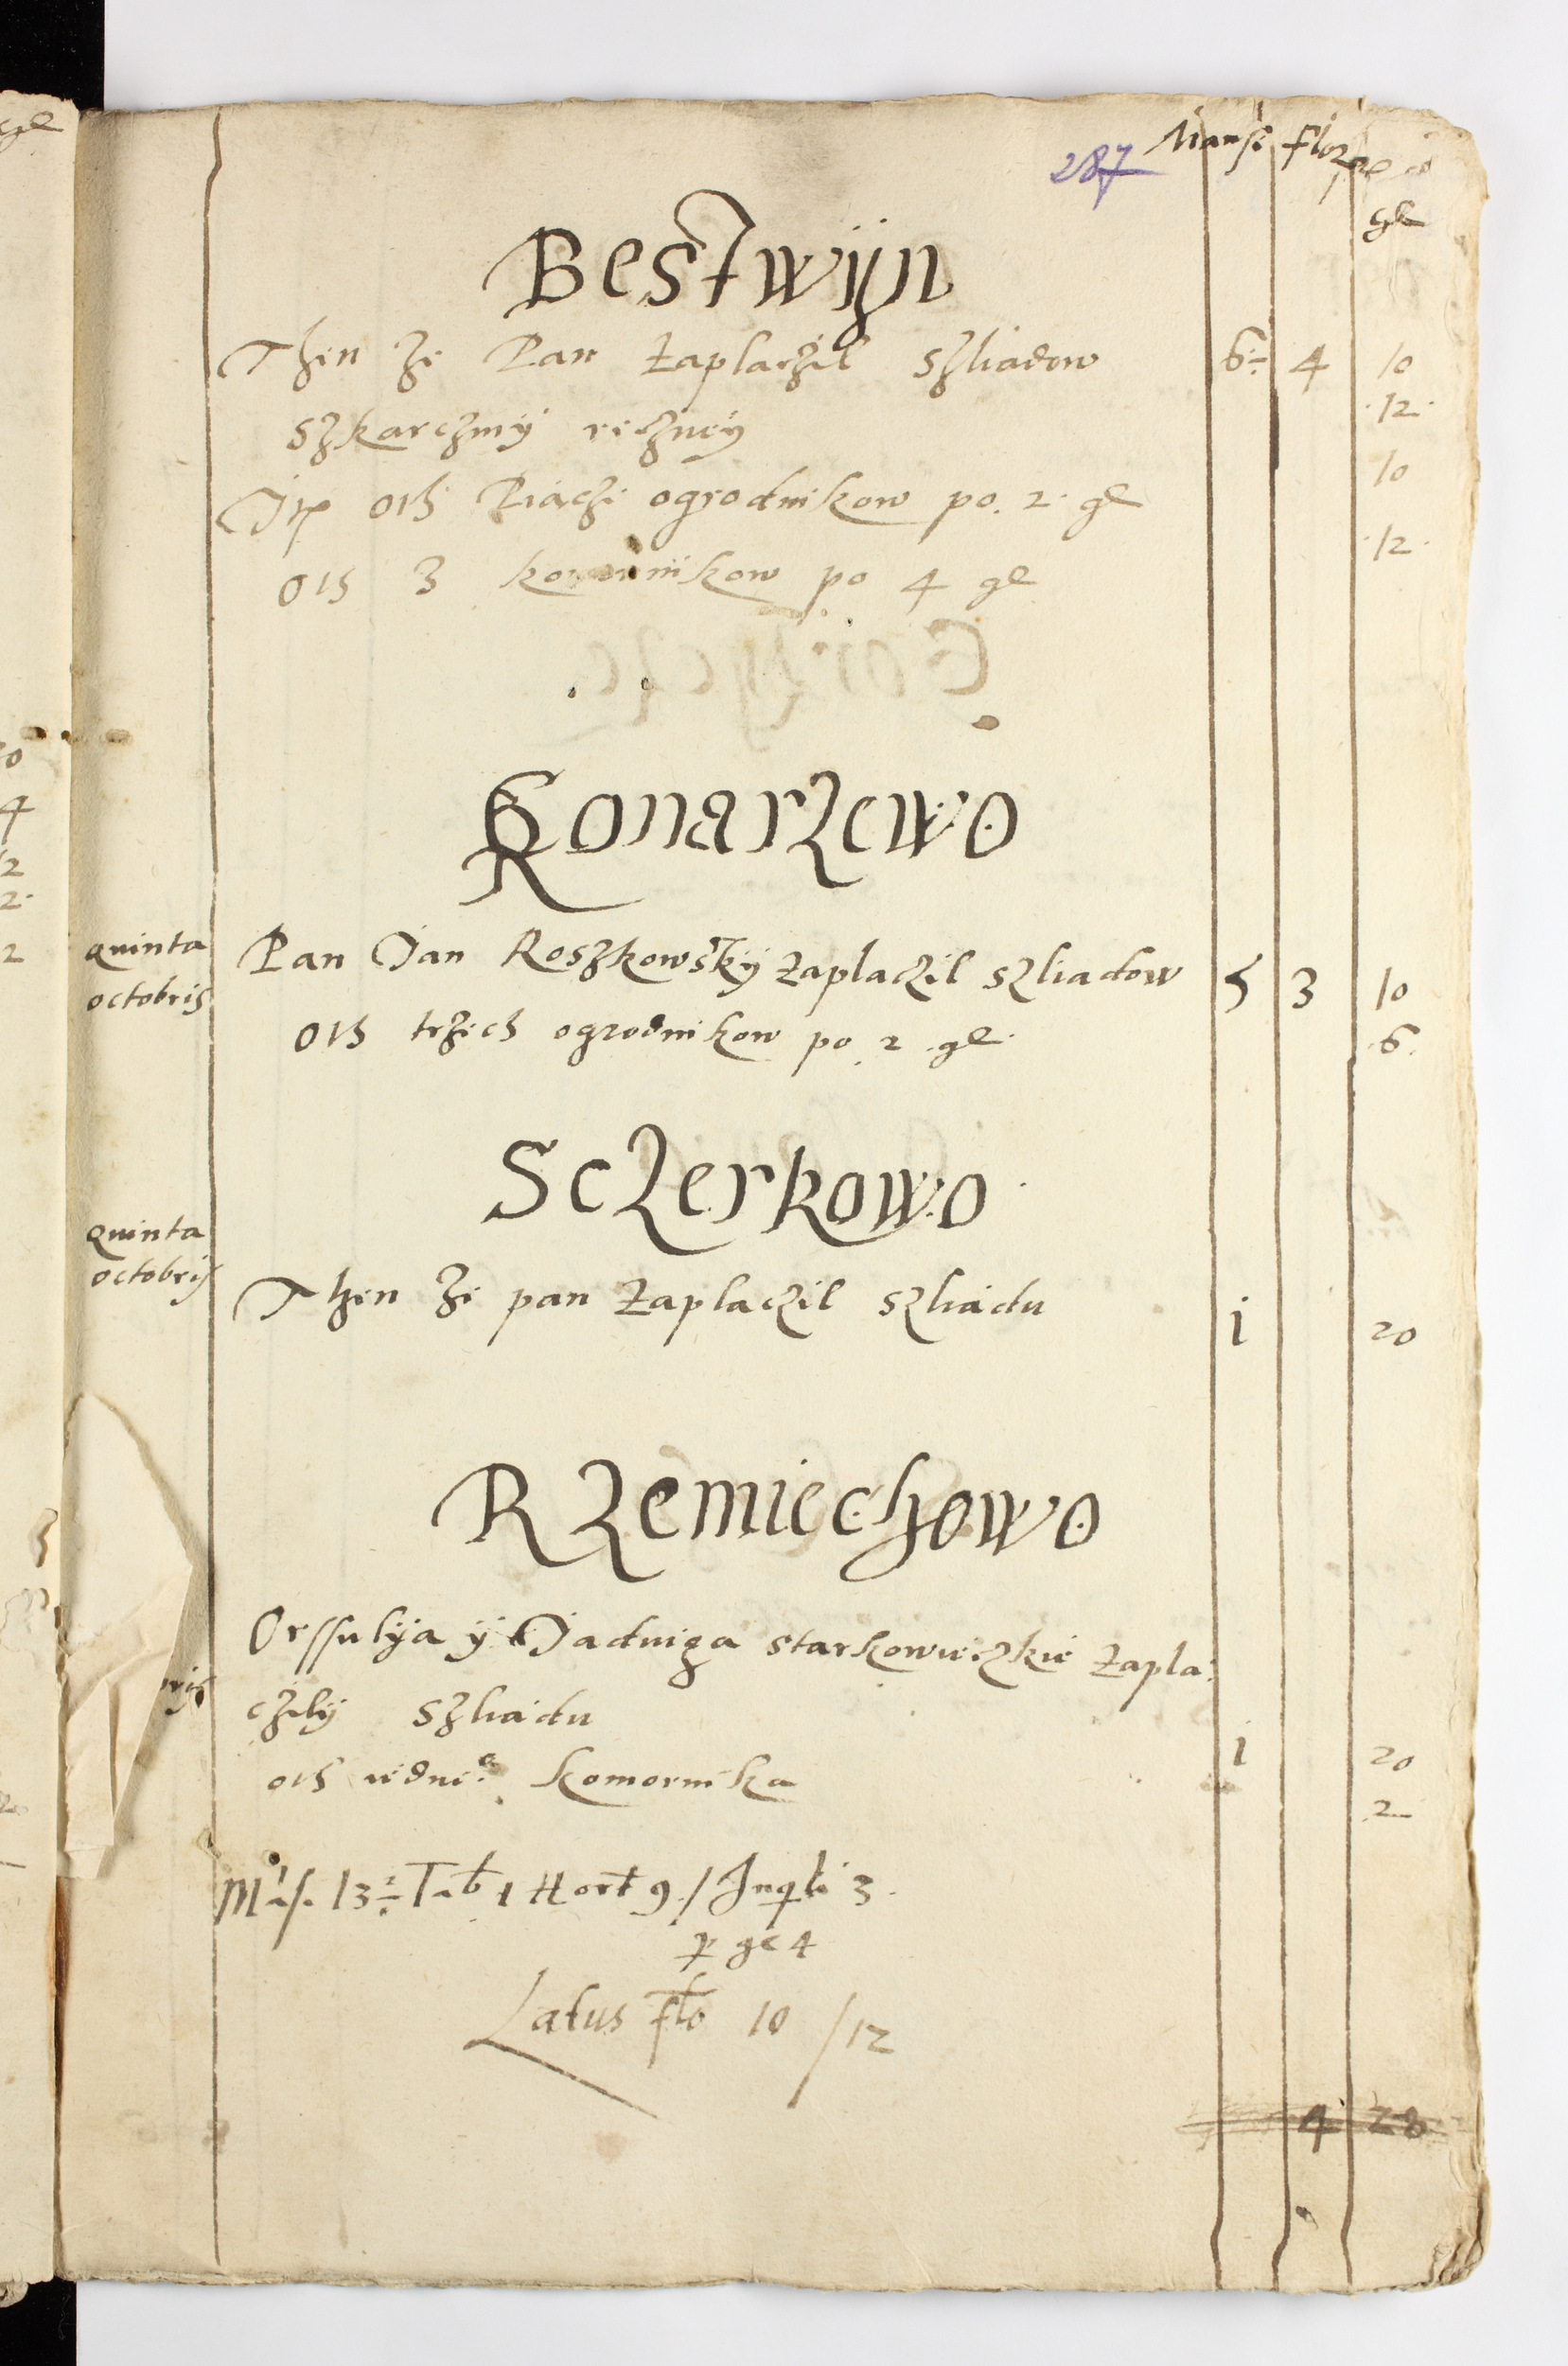 287 Mansi flor gr
gr
Bestwyn
Then Ze Pan Zaplaczil szliadow 6 4 10
szkarczmÿ ... 12
Itp oth Piaczi ogrodnikow po 2 gr 10
oth 3 komornikow po 4 gr 12
Konarzewo
quinta octobris
Pan Jan Roszkowskÿ zaplaczil szliadow 5 3 10
oth trzech ogrodnikow po 2 gr 6
Sczerkowo
quinta octobris
Then Ze pan Zaplaczil szliadu 1 20
Rzemiechowo
Orssulÿa ÿ Jadwiga starkowieczkie zapla
czilÿ szliadu 1 20
oth iedne° komornika 2
Mans. 13 Tab 1 Hort 9 / Inqli 3
p gr 4
Latus flo 10 / 12
4 28